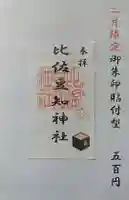 二月限定御朱印貼付型
五百円
奉拝
比佐豆知神社